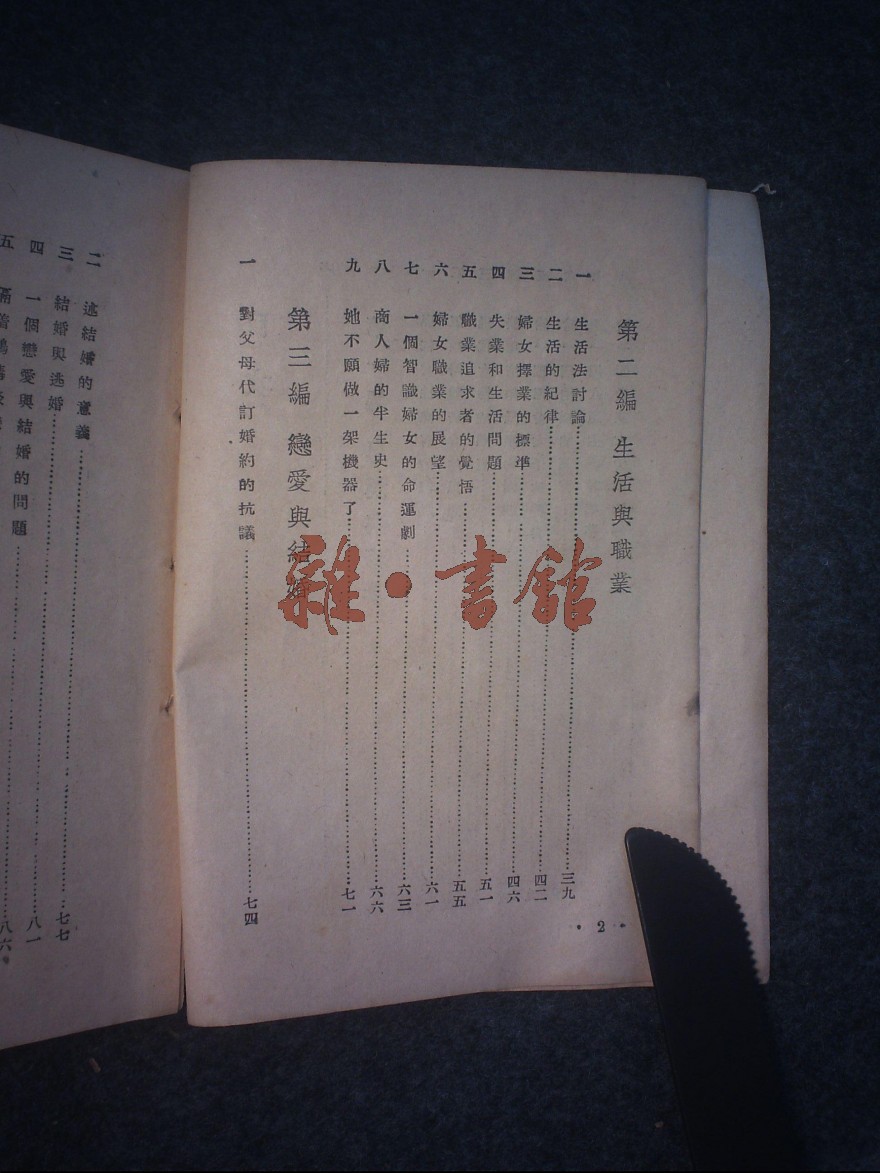 第二編 生活與職業
一 生活法討論……三九
二 生活的紀律……四二
三 婦女擇業的標準……四六
四 失業和生活問題……五一
五 職業追求者的覺悟……五五
六 婦女職業的展望……六一
七 一個智識婦女的命運劇……六三
八 商人婦的半生史……六六
九 她不願做一架機器了……七一
第三編 戀愛與結婚
一 對父母代訂婚約的抗議……七四
·2·
二 述結婚的意義
三 結婚與逃婚……七七
四 一個戀愛與結婚的問題……八一
五
八六
雜·書館